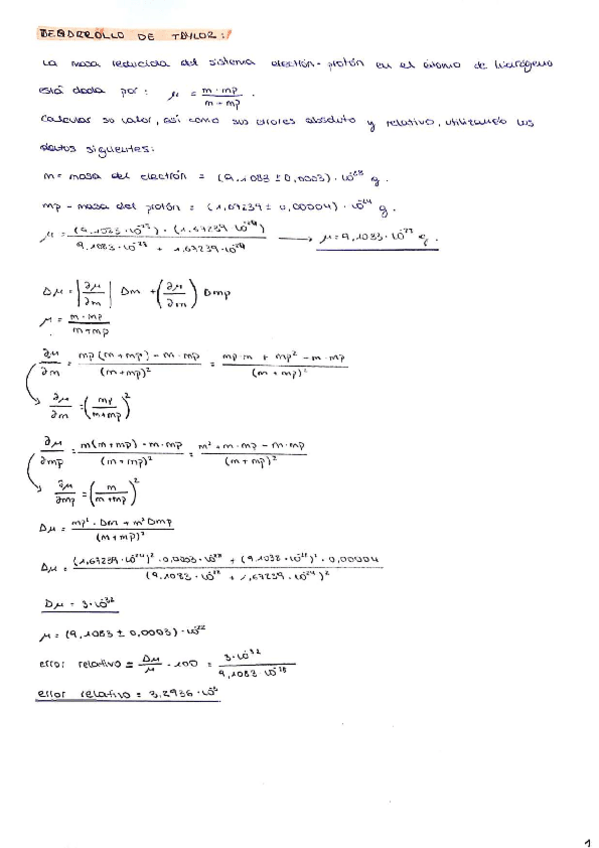 DESARROLLO DE TAYLOR:
La masa reducida del sistema electrón-protón en el átomo de hidrógeno
está dada por: μ = m·mp / m+mp .
Calcular su valor, así como sus errores absoluto y relativo, utilizando los
datos siguientes:
m = masa del electrón = (9.1083 ± 0,0003)·10⁻²⁸ g.
mp = masa del protón = (1,67239 ± 0,00004)·10⁻²⁴ g.
μ = (9.1083·10⁻²⁸)·(1.67239·10⁻²⁴) / 9.1083·10⁻²⁸ + 1.67239·10⁻²⁴ → μ = 9,1083·10⁻²⁸ g.
Δμ = |∂μ/∂m| Dm + (∂μ/∂m) Dmp
μ = m·mp / m+mp
∂μ/∂m = mp(m+mp) - m·mp / (m+mp)² = mp·m + mp² - m·mp / (m+mp)²
∂μ/∂m = (mp / m+mp)²
∂μ/∂mp = m(m+mp) - m·mp / (m+mp)² = m² + m·mp - m·mp / (m+mp)²
∂μ/∂mp = (m / m+mp)²
Δμ = mp²·Dm + m²Dmp / (m+mp)²
Δμ = (1,67239·10⁻²⁴)²·0,0003·10⁻²⁸ + (9.1083·10⁻²⁸)²·0,00004 / (9.1083·10⁻²⁸ + 1,67239·10⁻²⁴)²
Δμ = 3·10⁻³²
μ = (9,1083 ± 0,0003)·10⁻²⁸
error relativo = Δμ/μ · 100 = 3·10⁻³² / 9,1083·10⁻²⁸
error relativo = 3,2936·10⁻⁵
1